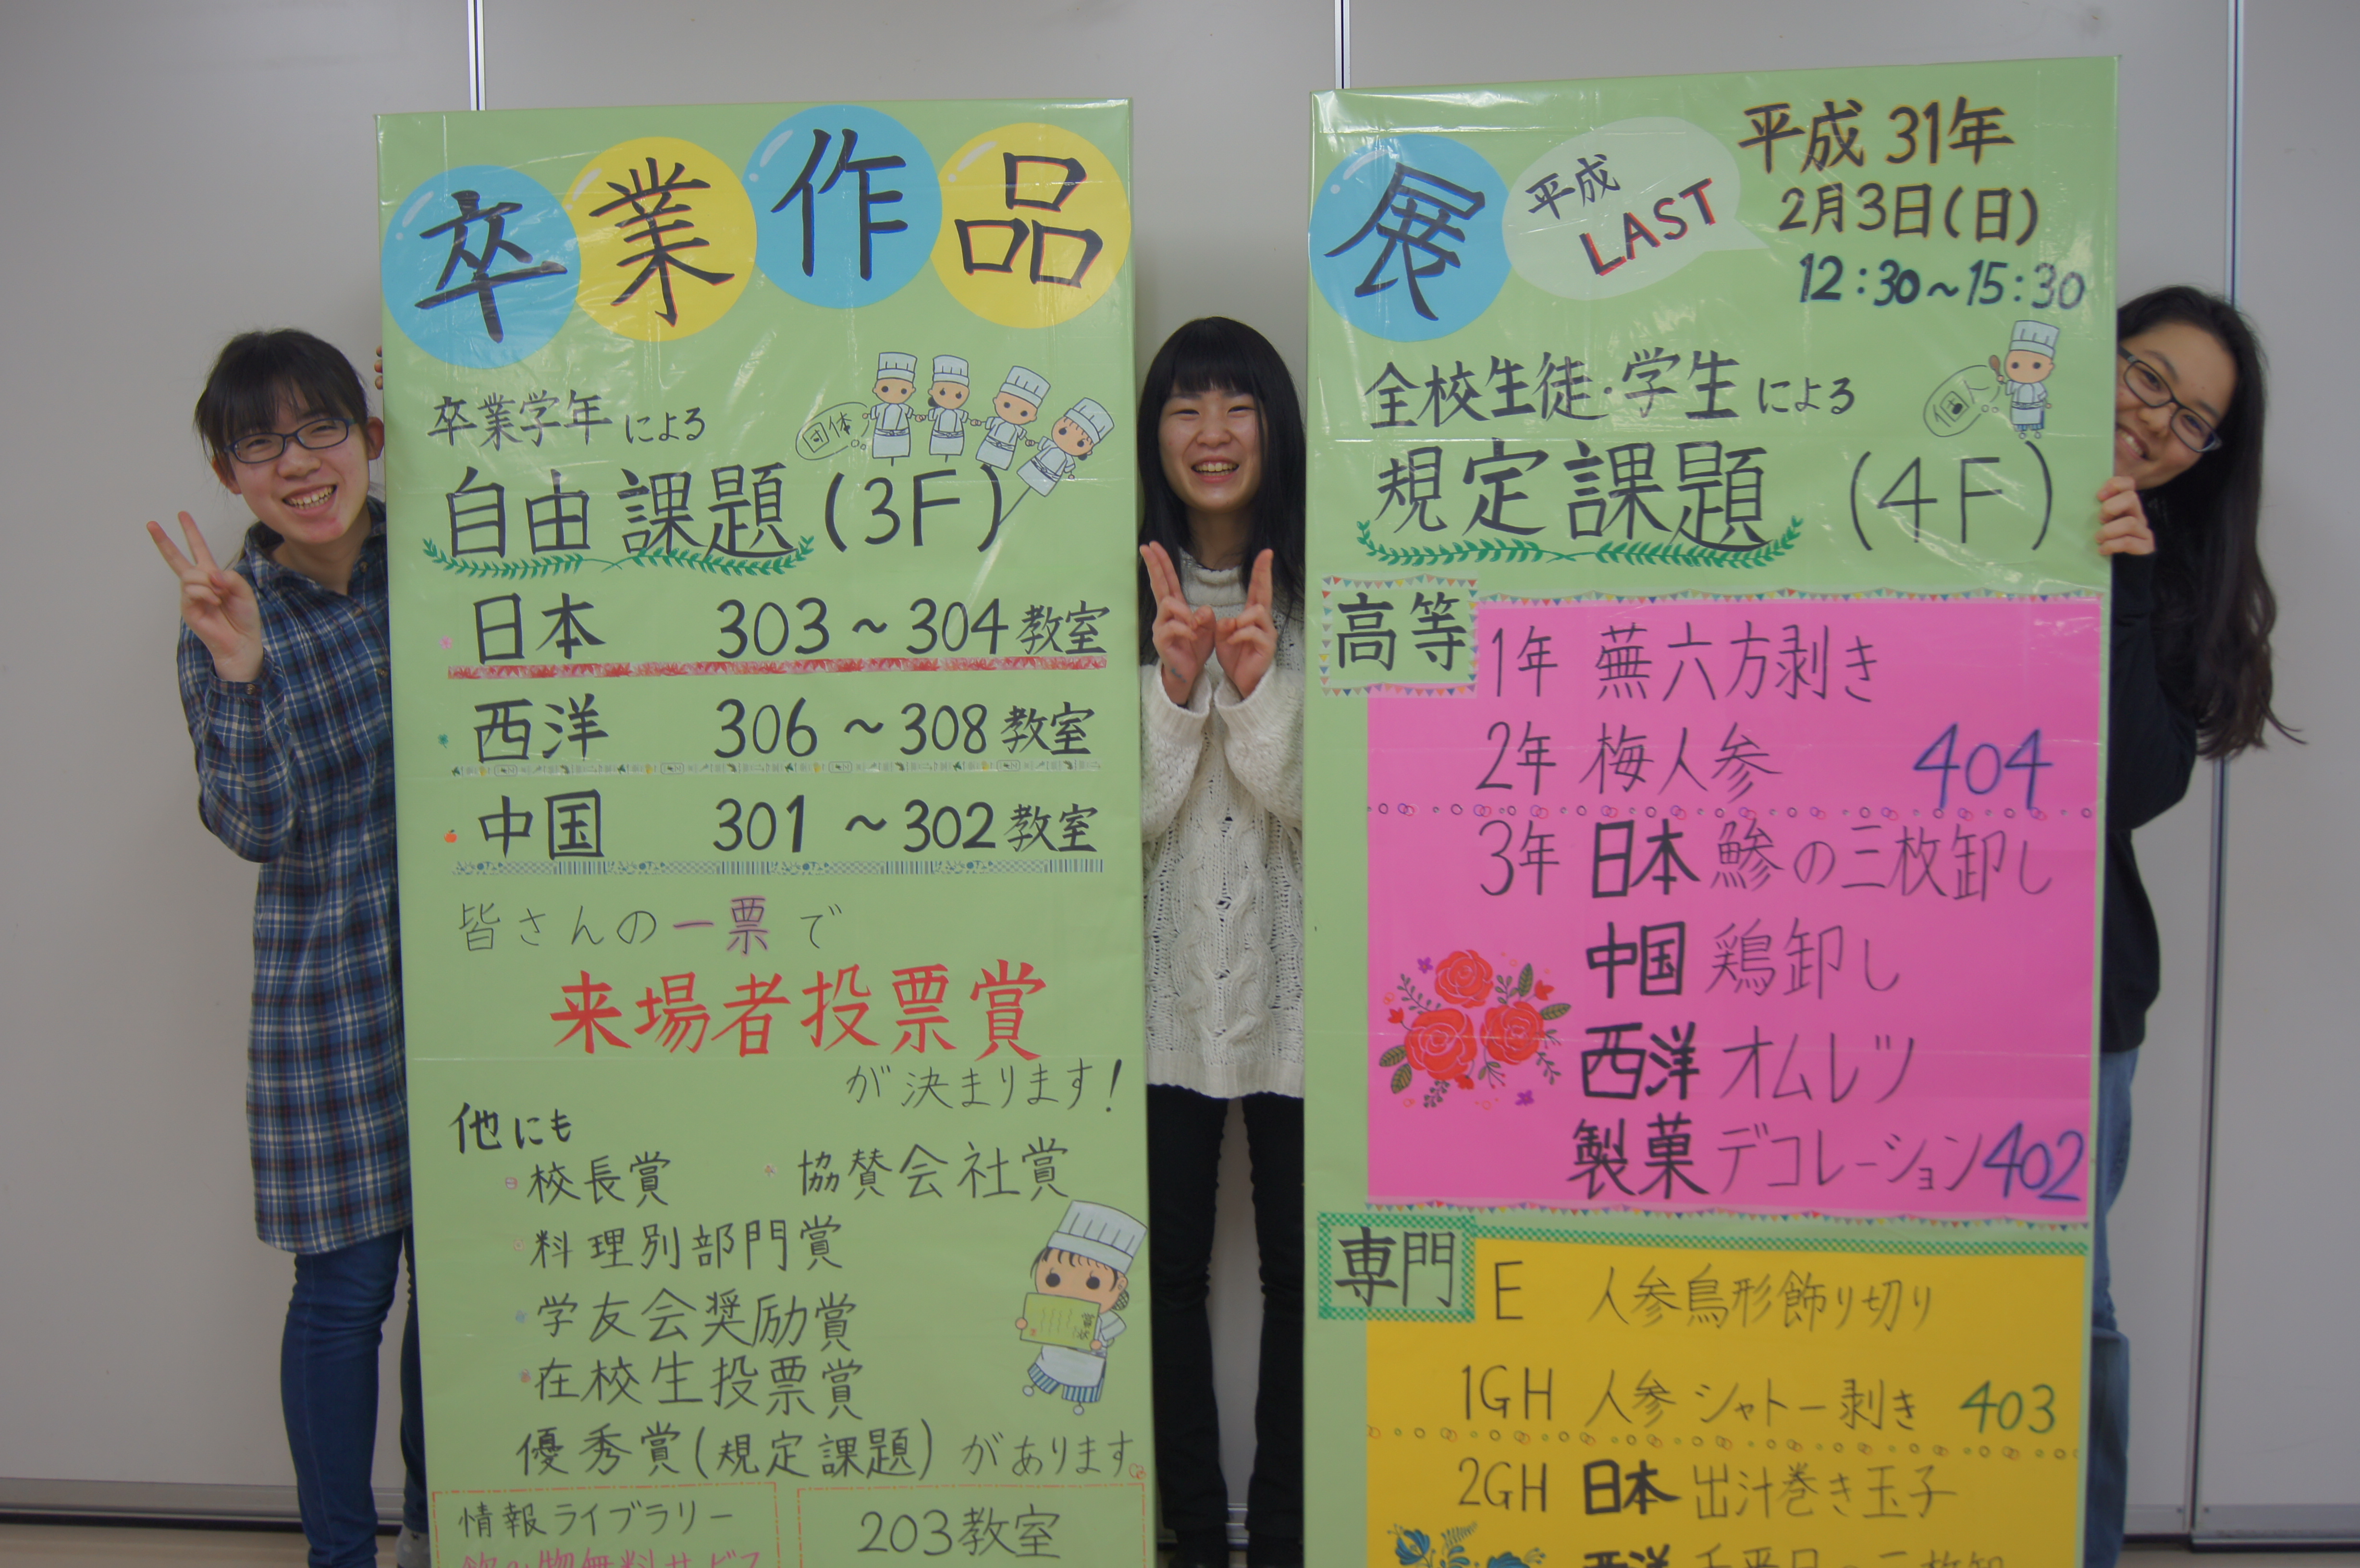 卒業作品
卒業学年による
団体
自由課題(3F)
日本 303~304教室
西洋 306~308教室
中国 301~302教室
皆さんの一票で
来場者投票賞
が決まります!
他にも
校長賞 協賛会社賞
料理別部門賞
学友会奨励賞
在校生投票賞
優秀賞(規定課題)があります。
情報ライブラリー
203教室
展
平成
LAST
平成31年
2月3日(日)
12:30~15:30
全校生徒・学生による
個人
規定課題 (4F)
高等
1年 蕪六方剥き
2年 梅人参 404
3年 日本 鯵の三枚卸し
中国 鶏卸し
西洋 オムレツ
製菓 デコレーション 402
専門
E 人参鳥形飾り切り
1GH 人参シャトー剥き 403
2GH 日本 出汁巻き玉子
西洋